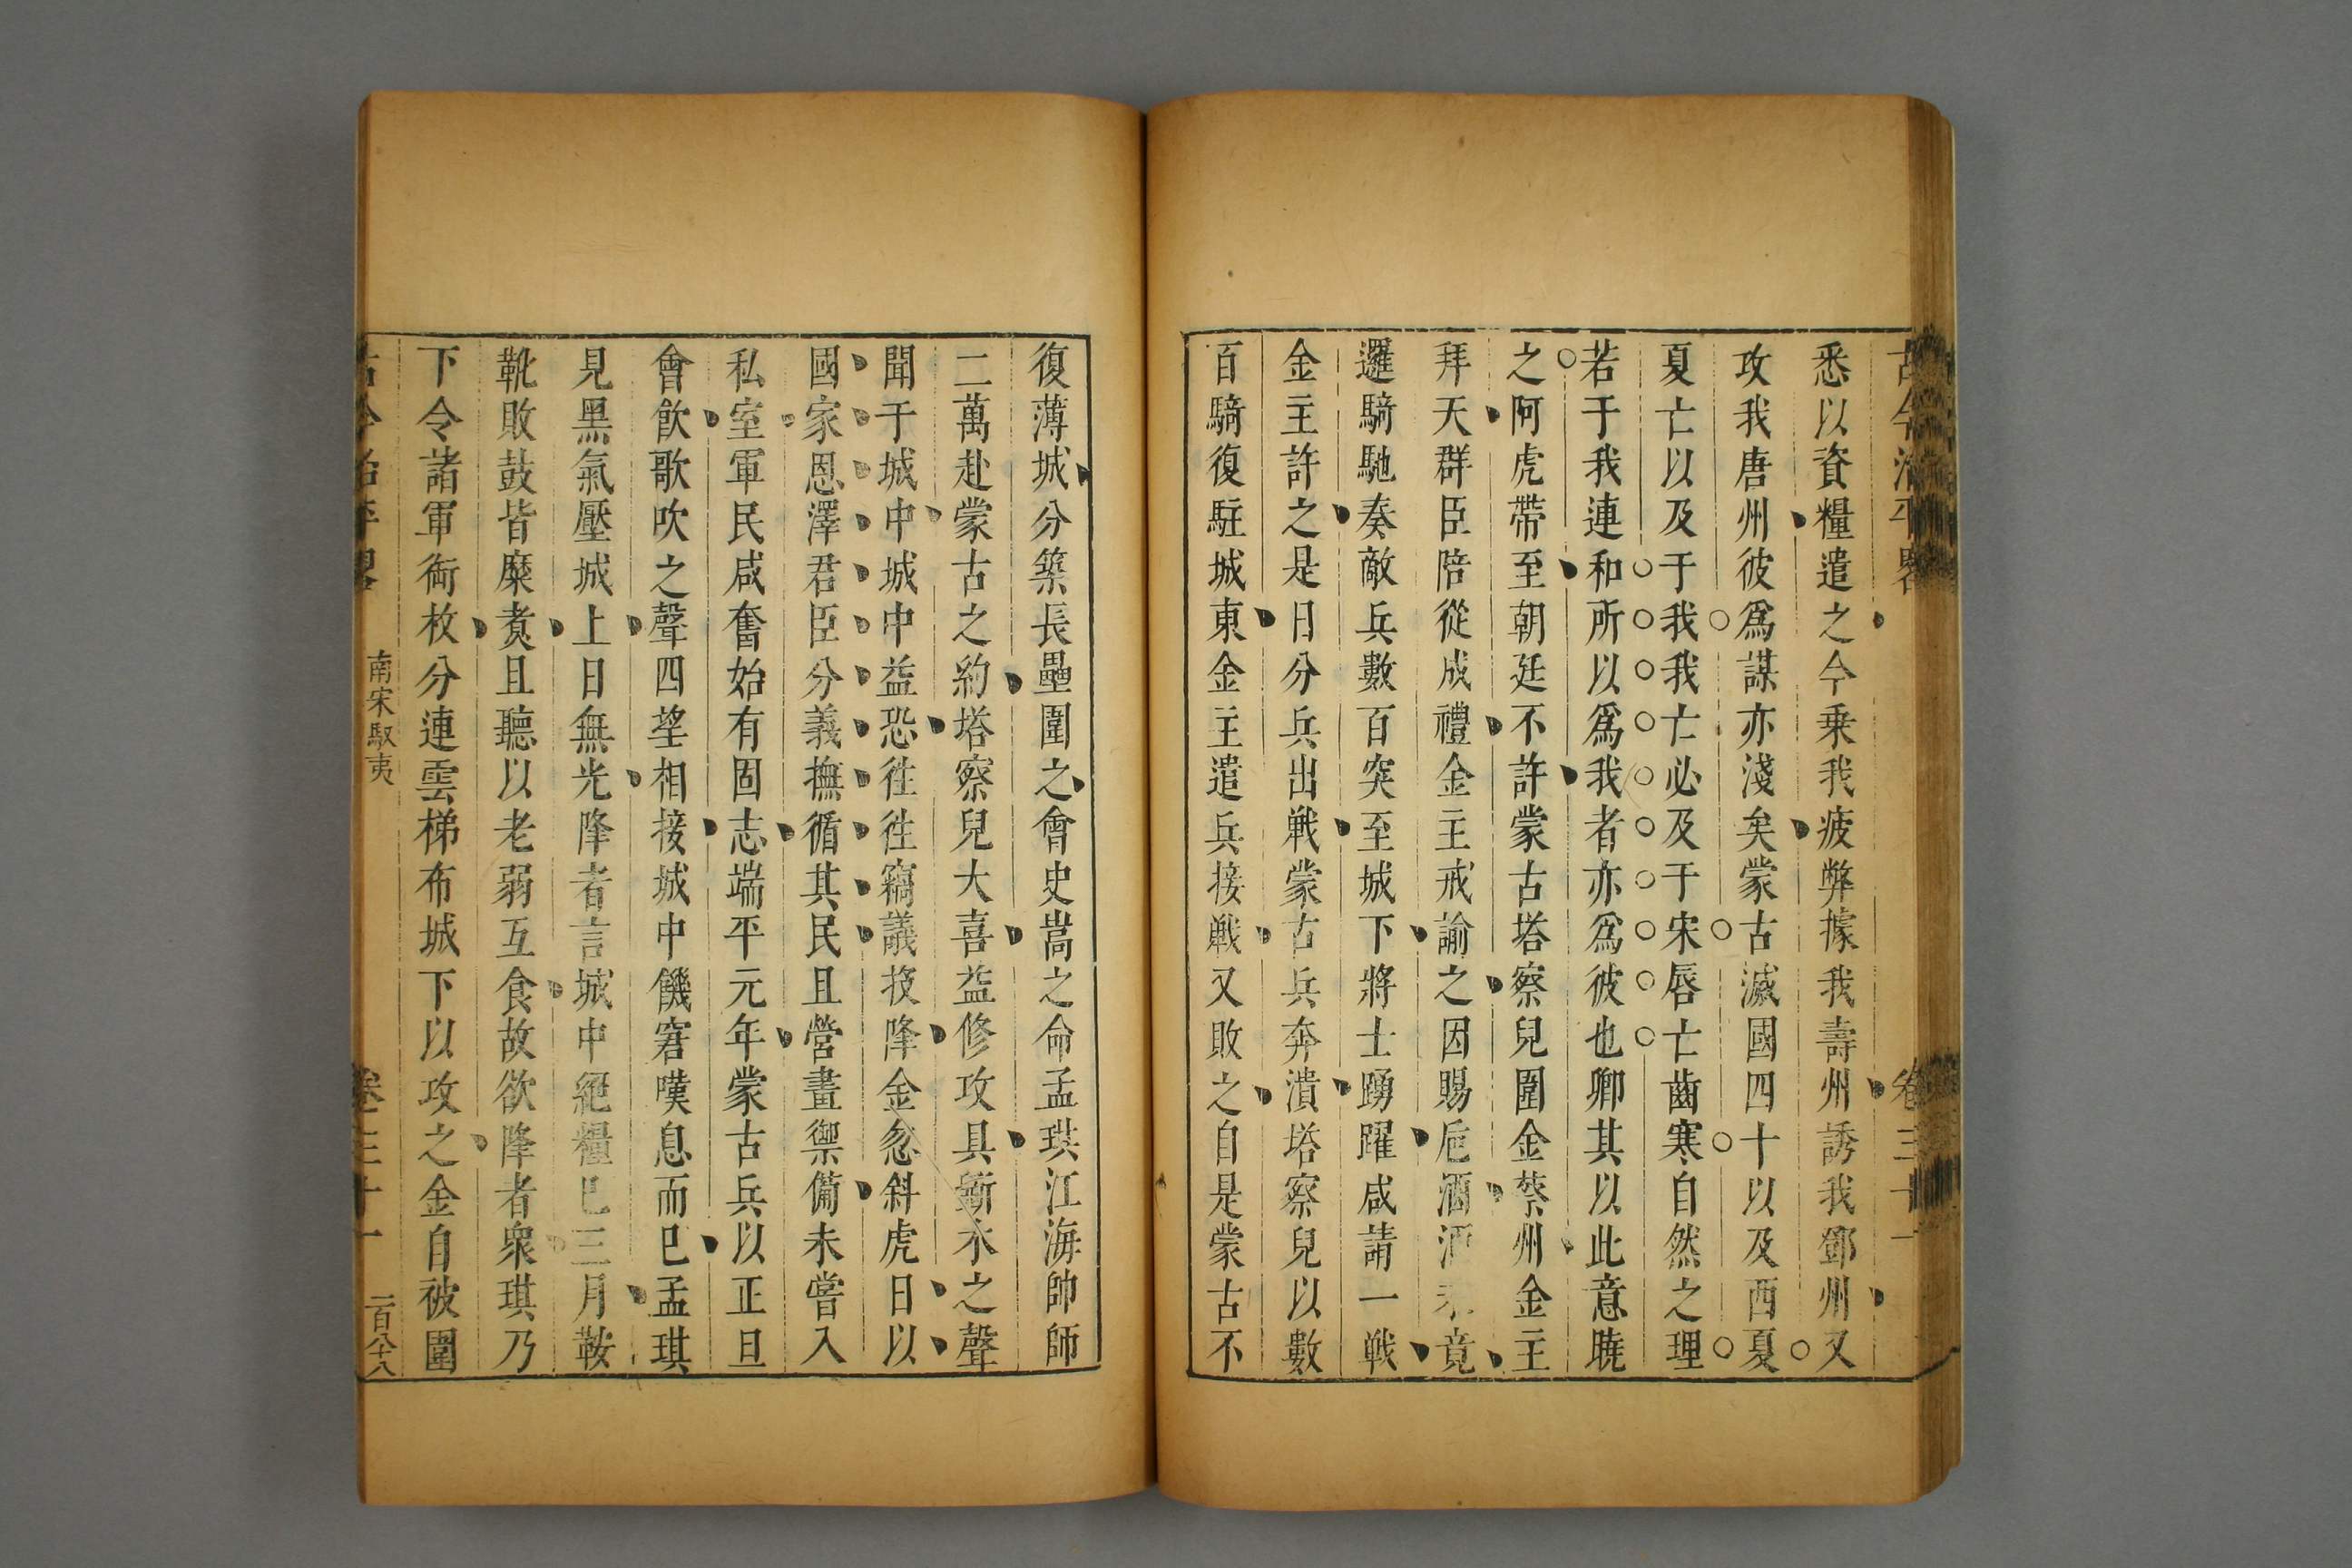 古今治平畧 卷三十一
悉以資糧遣之今乗我疲弊據我壽州誘我鄧州又
攻我唐州彼爲謀亦淺矣蒙古滅國四十以及西夏
夏亡以及于我我亡必及于宋唇亡齒寒自然之理
若于我連和所以爲我者亦爲彼也卿其以此意曉
之阿虎帶至朝廷不許蒙古塔察兒圍金蔡州金主
拜天群臣陪從成禮金主戒諭之因賜巵酒酒未竟
邏騎馳奏敵兵數百突至城下將士踴躍咸請一戦
金主許之是日分兵出戦蒙古兵奔潰塔察兒以數
百騎復駐城東金主遣兵接戦又敗之自是蒙古不
復薄城分築長壘圍之會史嵩之命孟珙江海帥師
二萬赴蒙古之約塔察兒大喜益修攻具斲木之聲
聞于城中城中益恐徃徃竊議投降金忽斜虎日以
國家恩澤君臣分義撫循其民且營畫禦備未嘗入
私室軍民咸奮始有固志端平元年蒙古兵以正旦
會飲歌吹之聲四望相接城中饑窘嘆息而已孟琪
見黑氣壓城上日無光降者言城中絕糧已三月鞍
靴敗鼓皆糜煑且聽以老弱互食故欲降者衆琪乃
下令諸軍銜枚分連雲梯布城下以攻之金自被圍
古今治平畧 南宋馭夷 卷三十一 一百八十八